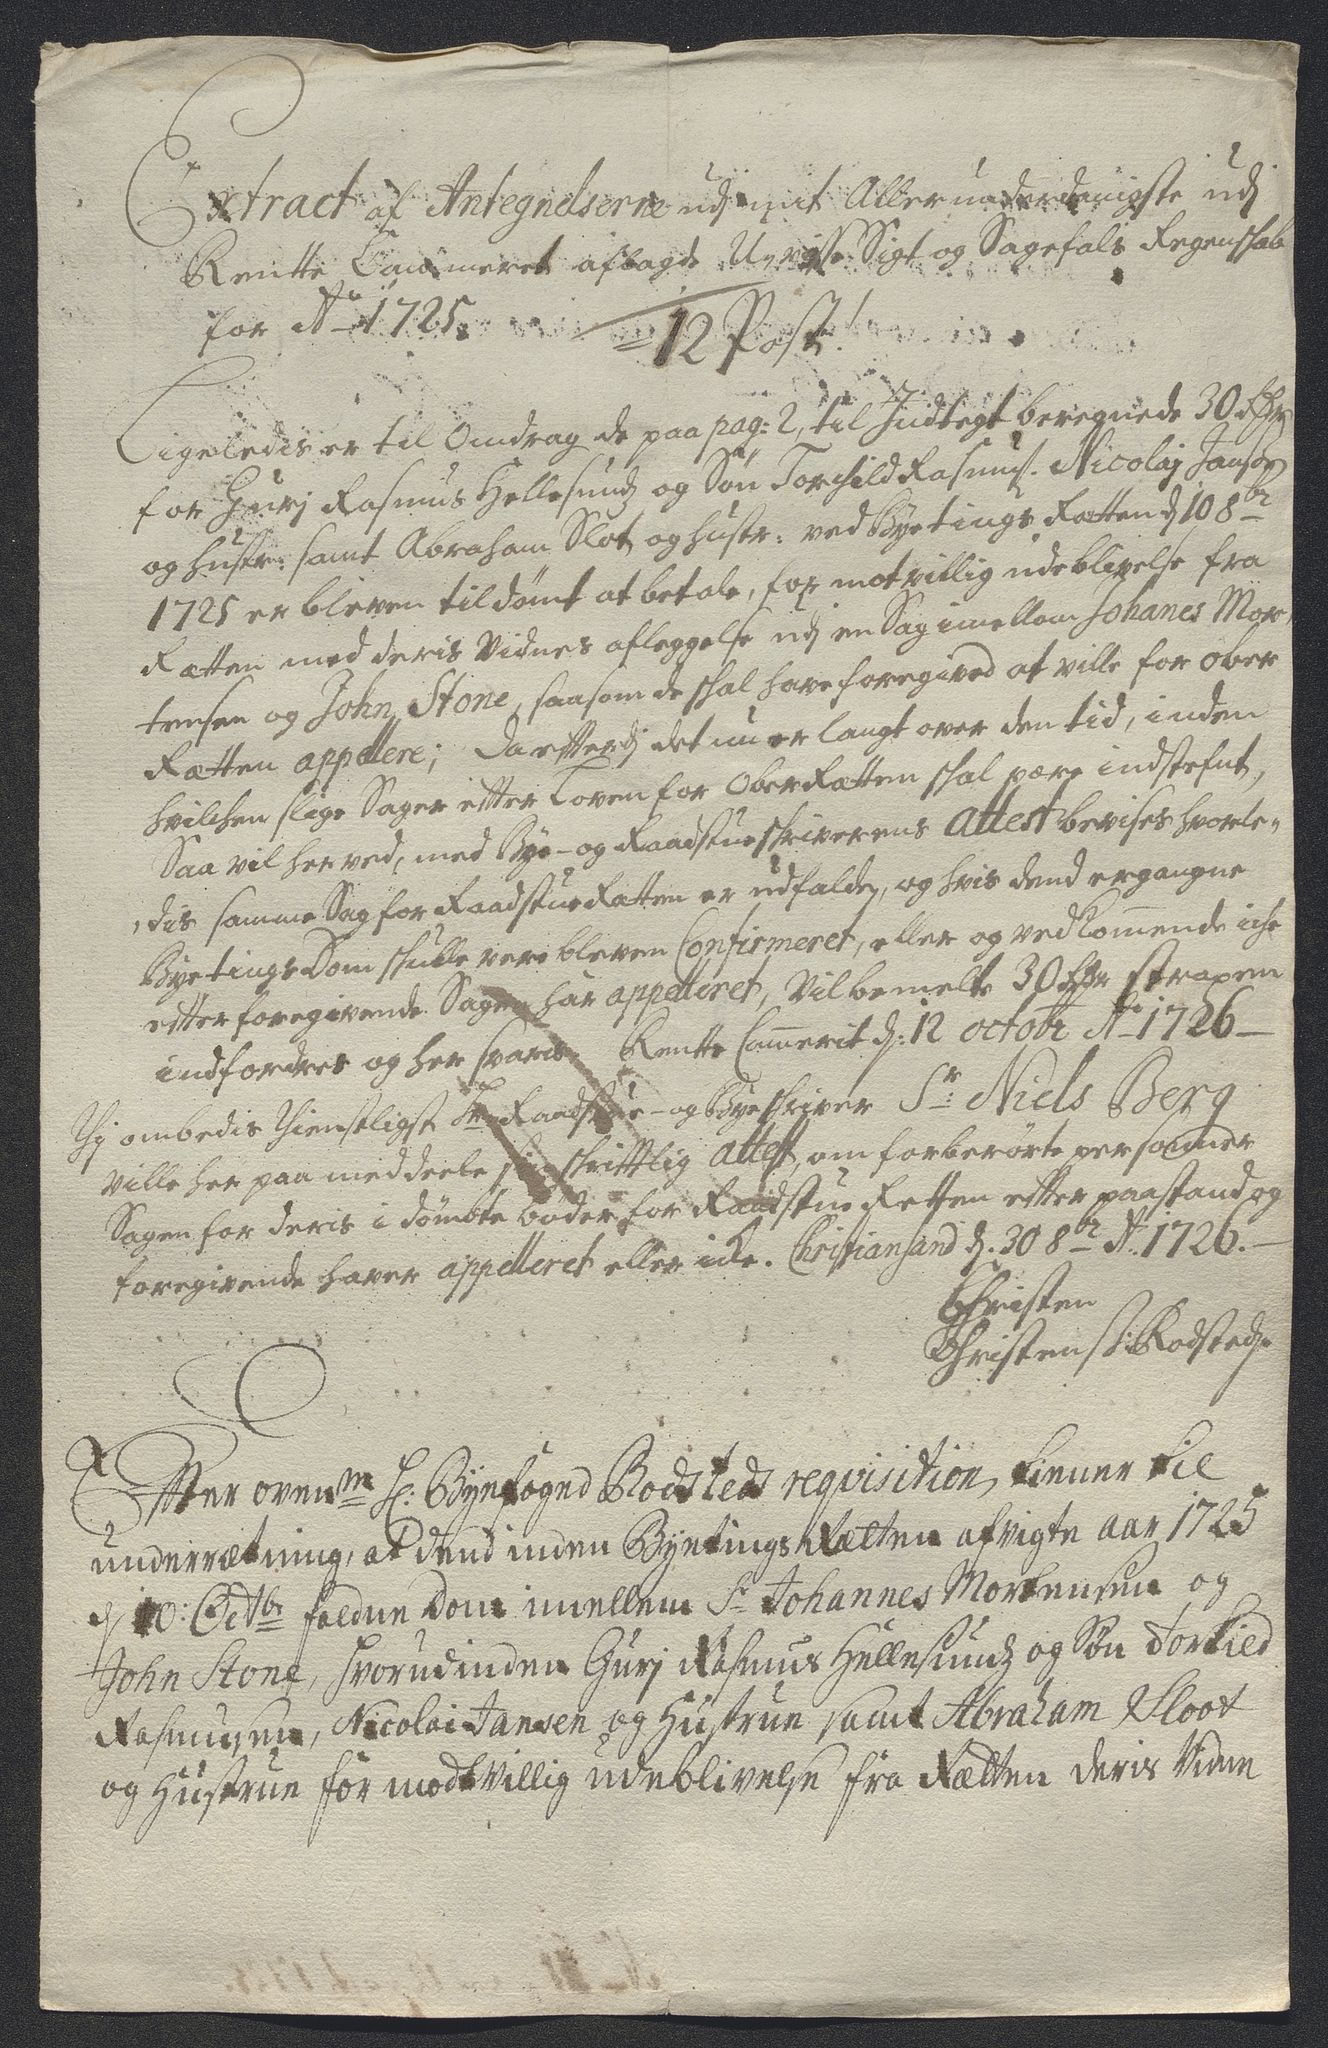 Extract af Antegnelserne udj mit Allerunderdanigste udj
Rentte Cammeret aflagde Uvisse Sigt og Sagefals Regenskab
for Ao 1725.
12 Post.
Ligeledis er til Omdrag de paa pag: 2, til Indtegt beregnede 30 Rdr
for Gurj Rasmus Hellesundz og Søn Torchild Rasmuss. Nicolaj Jansen
og hustr: samt Abraham Slot og hustr: ved Byetings Retten d 10 8br
1725 er bleven tildømt at betale, for motvillig udeblivelse fra
Retten med deris Vidnes afleggelse udj en Sag imellem Johanes Mor-
tensen og John Stone, saasom de skal have foregived at ville for ober
Retten appellere; Da efterdj det nu er langt over den tid, inden
hvilchen slige Sager etter Loven for Ober Retten skal være indstefnt,
Saa vil herved, med Bye- og Raadstueskriverens attest bevises hvorle-
dis samme Sag for Raadstue Retten er udfalden, og hvis dend ergangne
Byetings Dom skulle vere bleven Confirmeret, eller og vedkommende iche
etter foregivende Sagen har appelleret, Vil bemelte 30 Rdr strax em
indfordres og her svaris. Rentte Cammerit d: 12 octobr Ao 1726
Thj ombedis tienstligst Hr Raadstue- og Byeskriver Sr: Niels Berg
ville her paa meddeele sin skrifttlig attest, om forberørte personer
Sagen for deris i dømbte bøder for Raadstue Retten etter paastand og
foregivende haver appelleret eller icke. Christiansand d. 30 8br Ao. 1726.
Christen
Christens: Rodsted
Efter ovenm Hr: Byefoged Rodsteds reqvisition, tiener til
underrætning, at dend inden Byetings Rætten afvigte aar 1725
d 10: Octbr faldne Dom imellem Sr Johannes Mortensen og
John Stone, hvorudinden Gurj Rasmus Hellesundz og Søn Torkild
Rasmusen, Nicolai Jansen og Hustrue samt Abraham Sloot
og Hustrue for modtvillig udeblivelse fra Rætten deris Vidne